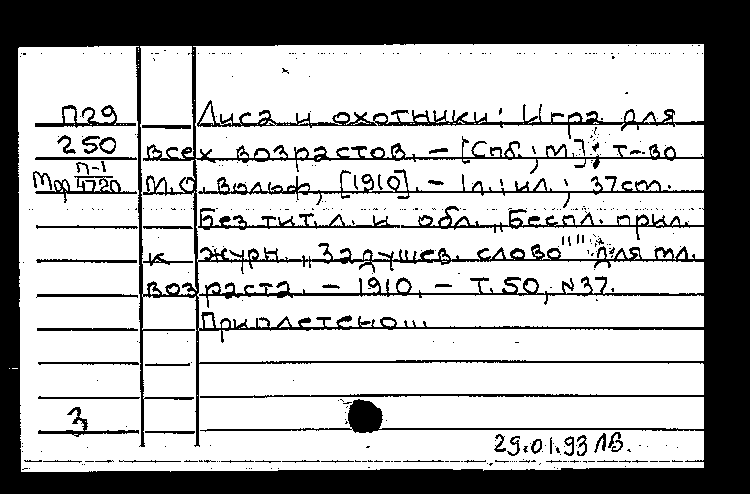 П29 Лиса и охотники: Игра для
250 всех возрастов. – [Спб.; М.]: т-во
Мф П-1/4720 М.О. Вольф, [1910]. – 1л.: ил.; 37см.
Без тит. л. и обл. „Беспл. прил.
к журн. „Задушев. слово"" для мл.
возраста. – 1910. – Т.50, №37.
Приплетено...
3
29.01.93 ЛВ.